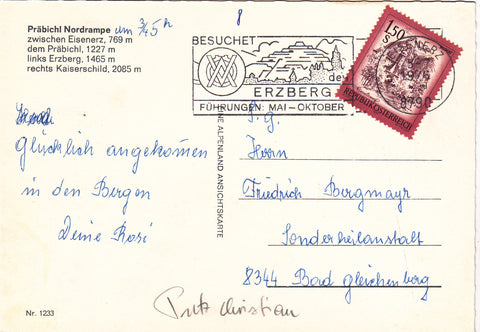 Präbichl Nordrampe um 3/45 h
zwischen Eisenerz, 769 m
dem Präbichl, 1227 m
links Erzberg, 1465 m
rechts Kaiserschild, 2085 m
8
BESUCHET
den
ERZBERG
FÜHRUNGEN: MAI – OKTOBER
1.50 S
8790
REPUBLIK ÖSTERREICH
Glücklich angekomen
in den Bergen
Deine Rosi
ALPENLAND ANSICHTSKARTE
S. g.
Herrn
Friedrich Bergmayr
Sonderheilanstalt
8344 Bad gleichenberg
Nr. 1233
Putz Christian